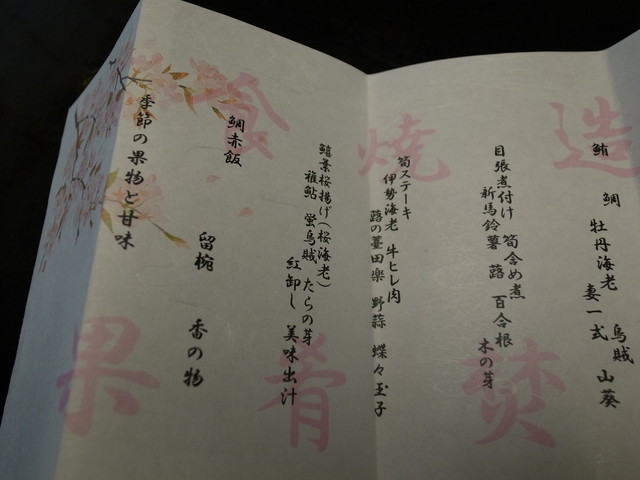 造
鮪　鯛　牡丹海老　烏賊
妻一式　山葵
焚
目張煮付け　筍含め煮
新馬鈴薯　蕗　百合根
木の芽
焼
筍ステーキ　牛ヒレ肉
伊勢海老
蕗の薹田楽　野蒜　蝶々玉子
肴
鱚葉桜揚げ（桜海老）
稚鮎　蛍烏賊　たらの芽
紅卸し　美味出汁
食
鯛赤飯
留椀　香の物
果
季節の果物と甘味